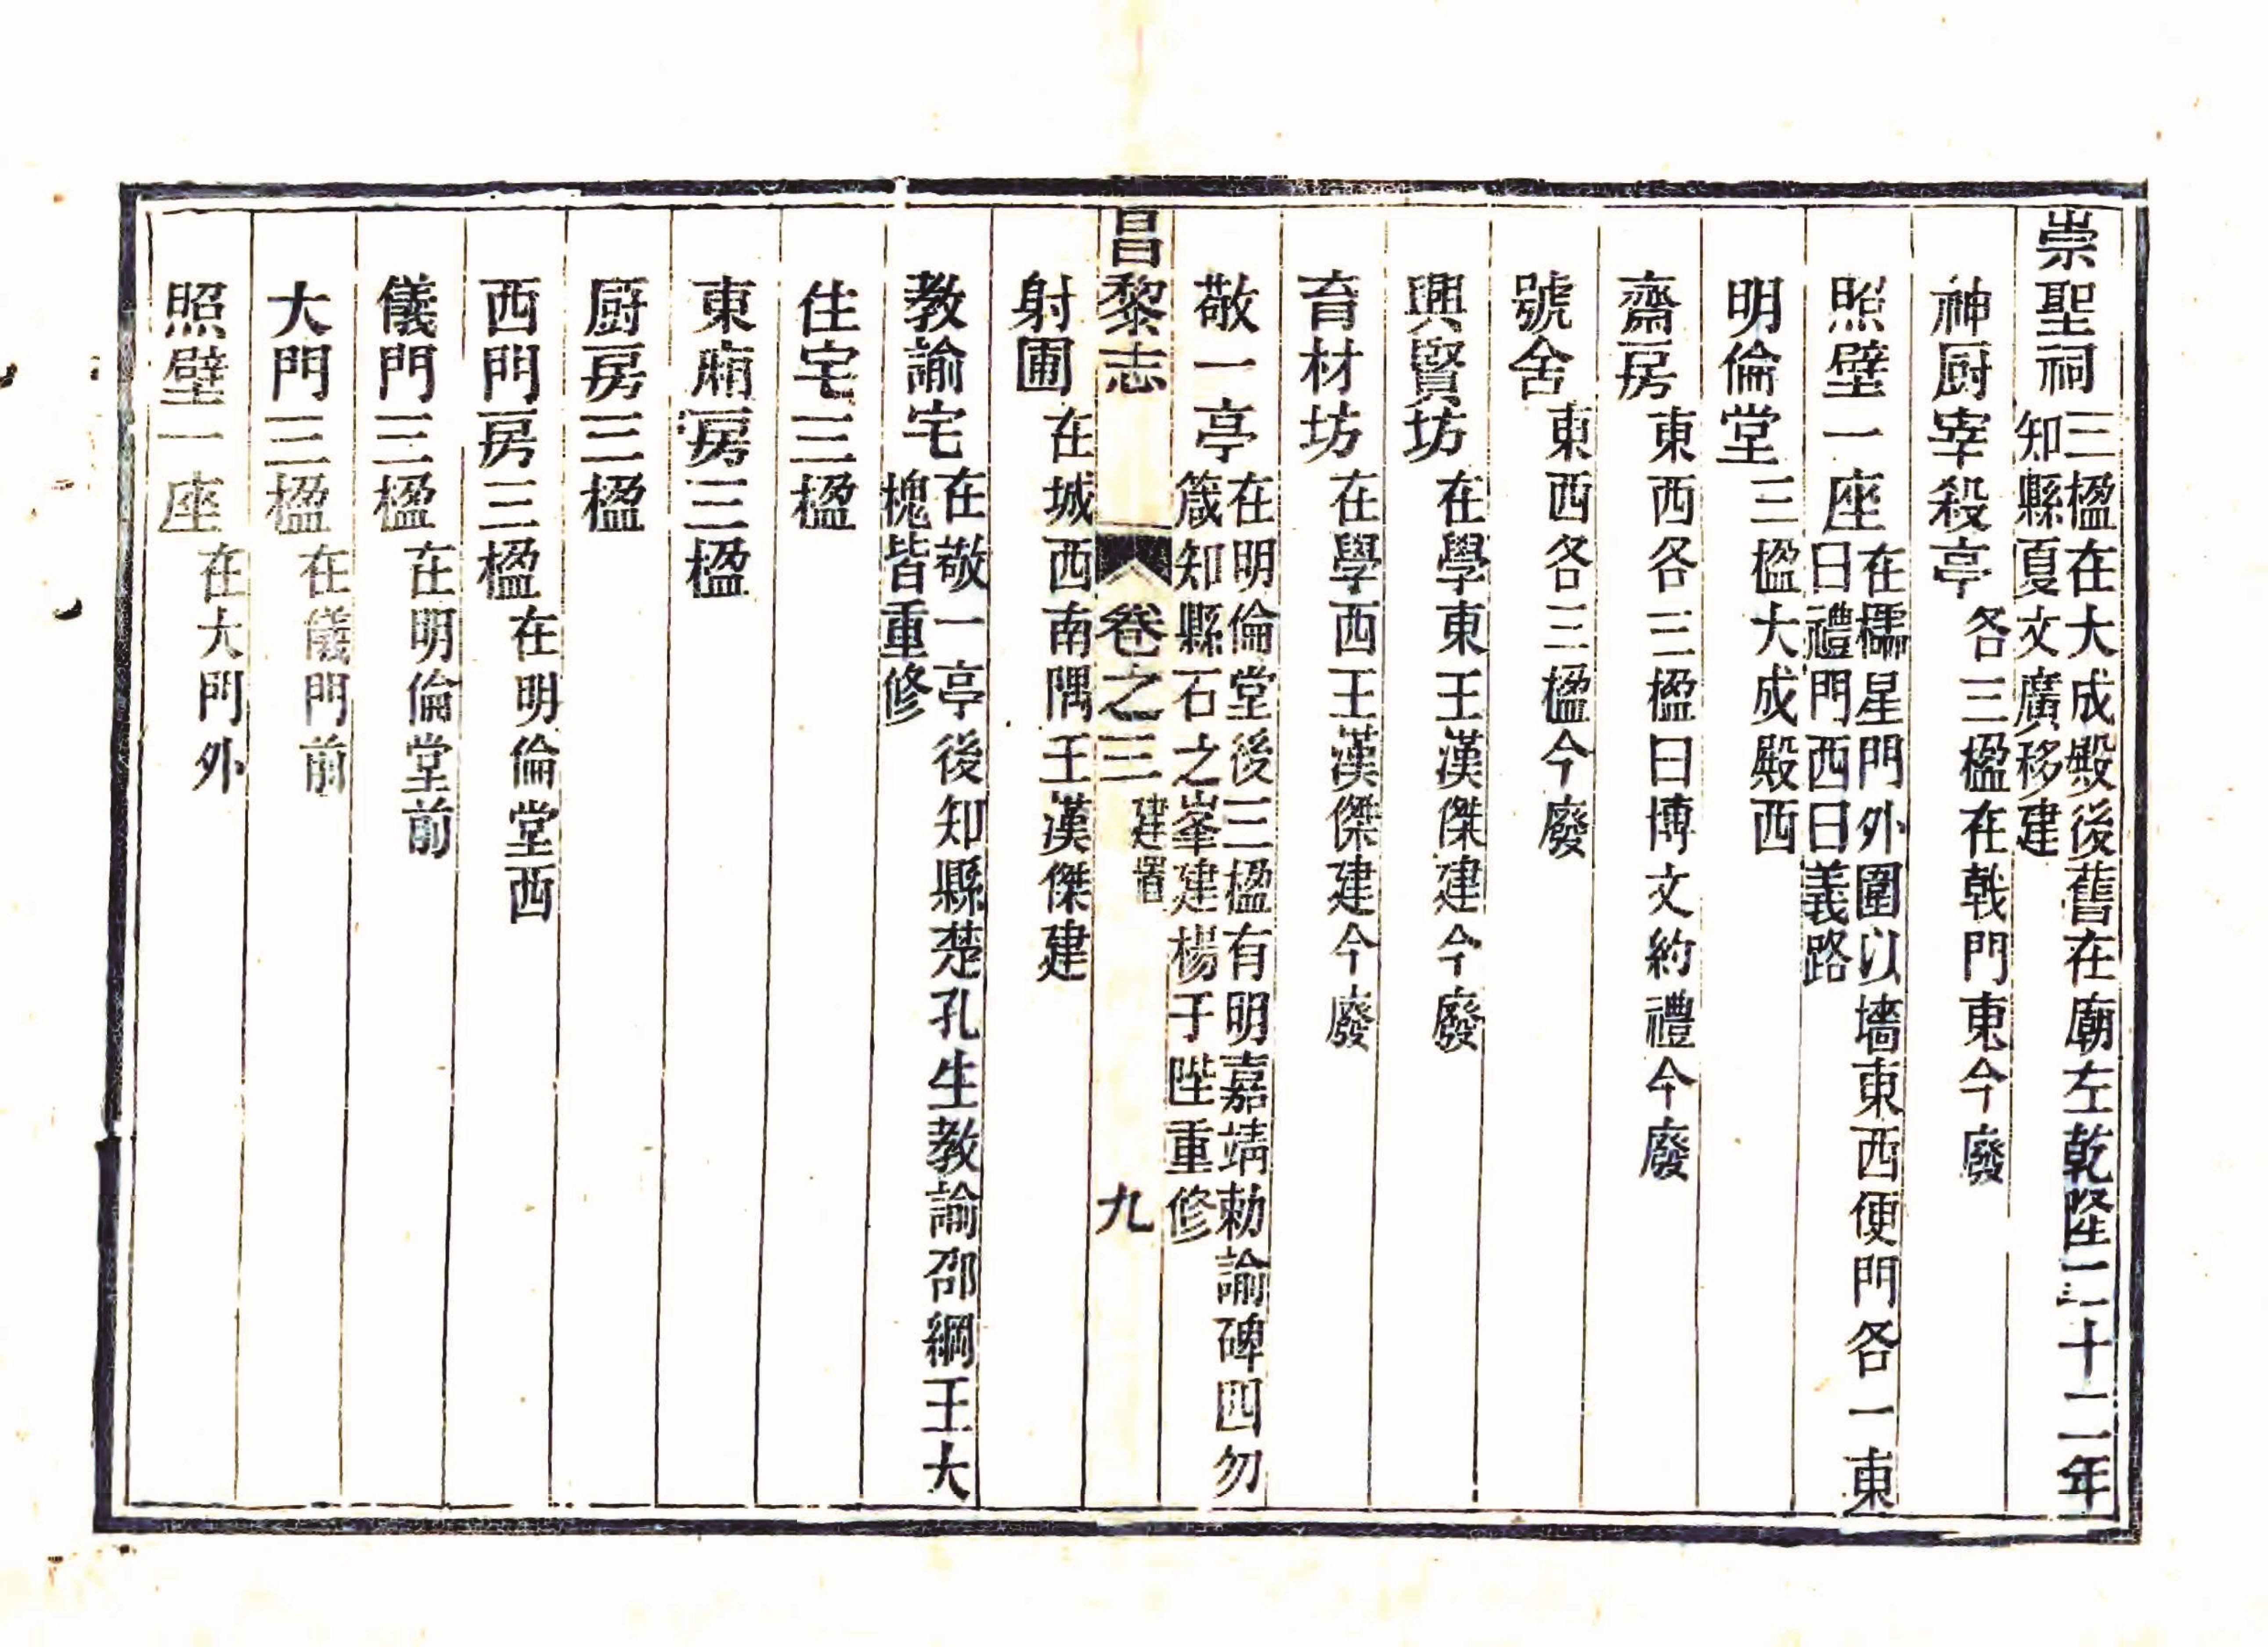 崇聖祠三楹在大成殿後舊在廟左乾隆二十二年
知縣夏文廣移建
神厨宰殺亭各三楹在戟門東今廢
照壁一座在櫺星門外圍以墻東西便門各一東
曰禮門西曰義路
明倫堂三楹大成殿西
齋房東西各三楹曰博文約禮今廢
號舍東西各三楹今廢
興賢坊在學東王漢傑建今廢
育材坊在學西王漢傑建今廢
敬一亭在明倫堂後三楹有明嘉靖勅諭碑四勿
箴知縣石之峯建楊于陛重修
昌黎志 卷之三 建置 九
射圃在城西南隅王漢傑建
教諭宅在敬一亭後知縣楚孔生教諭邵綱王大
槐皆重修
住宅三楹
東廂房三楹
厨房三楹
西門房三楹在明倫堂西
儀門三楹在明倫堂前
大門三楹在儀門前
照壁一座在大門外